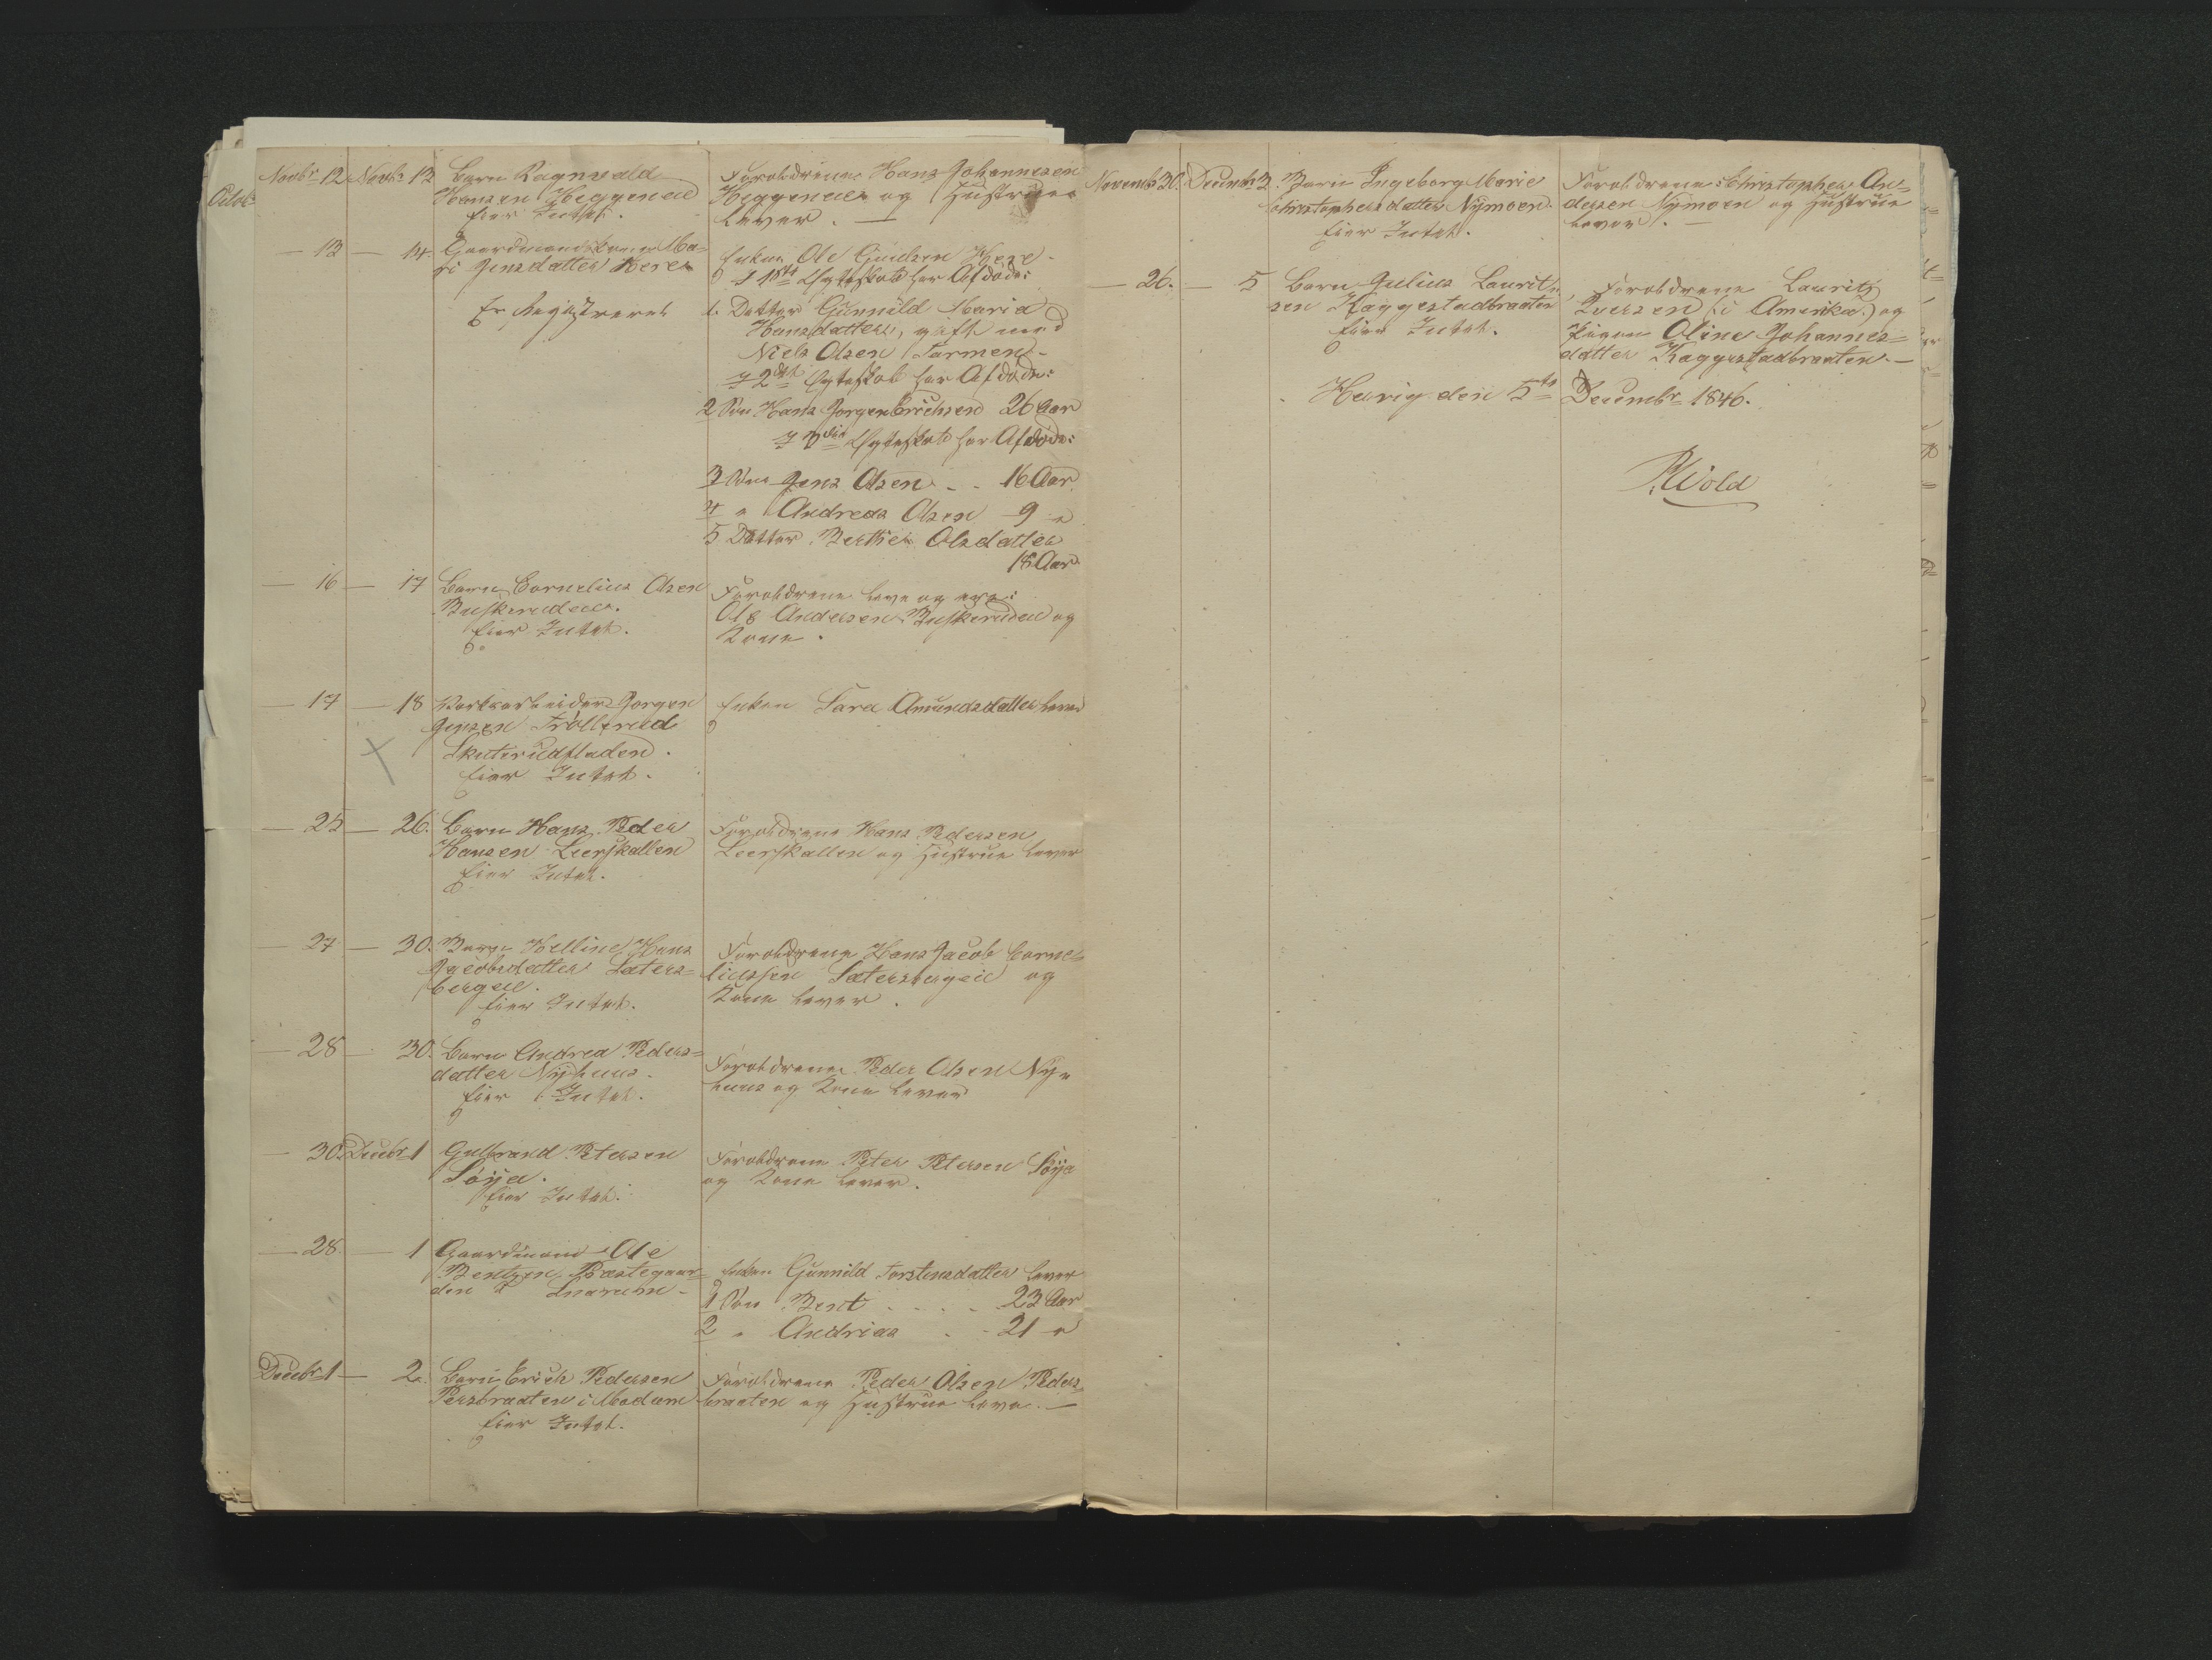 Octob
Novbr 12 Novbr 13 Barn Ragnvald
Hansen Heggenald
Eier Intet.
Forældrene Hans Johannesen
Heggenald og Hustrue
Lever.
13 14 Gaardmandskone Ma-
ri Jensdatter Here
Er Registreret
Enken Ole Guulsen Here
I 1ste Ægteskab har Afdøde:
1. Datter Gunnild Maria
Hansdatter, gift med
Niels Olsen Tarmen
I 2det Ægteskab har Afdøde:
2 Søn Hans Jørgen Erichsen 26 Aar
I 3die Ægteskab har Afdøde:
3 Søn Jens Olsen 16 Aar
4 " Andreas Olsen 9 "
5 Datter Berthe Olsdatter
18 Aar
16 17 Barn Cornelius Olsen
Buskeruden.
Eier Intet.
Forældrene leve og ere:
Ole Andersen Buskeruden og
Kone.
17 18 Værksarbeider Jørgen
Jensen Tröllerud
Skuterudfladen.
Eier Intet.
Enken Sara Amundsdatter lever
25 26. Barn Hans Peder
Hansen Leerskallen
Eier Intet.
Forældrene Hans Pedersen
Leerskallen og Hustrue lever
27 30. Barn Helline Hans
Jacobsdatter Sæters-
bergen.
Eier Intet.
Forældrene Hans Jacob Corne-
liussen Sætersbergen og
Kone lever.
28 30. Barn Andrea Peders-
datter Nyhuus.
Eier Intet.
Forældrene Peder Olsen Ny-
huus og Kone lever
30 Decbr 1 Gulbrand Petersen
Söya.
Eier Intet.
Forældrene Peter Petersen Söya
og Kone lever.
28. 1 Gaardmand Ole
Bentzen Præstegaar-
den i Snarum
Enken Gunnild Torstensdatter lever
1 Søn Bent 23 Aar
2 " Andreas 21 "
Decbr 1 2. Barn Erich Pedersen
Persbraaten i Modum
Eier Intet.
Forældrene Peder Olsen Peders-
braaten og Hustrue leve.
Novembr 30. Decembr 3. Barn Ingeborg Marie
Christophersdatter Nymoen.
Eier Intet.
Forældrene Christopher An-
dersen Nymoen og Hustrue
lever.
26. 5 Barn Julius Laurit-
sen Kaggestadbraaten
Eier Intet.
Forældrene Lauritz
Iversen (i Amerika) og
Pigen Oline Johannes-
datter Kaggestadbraaten.
Heerig den 5te Decembr 1846.
Wold